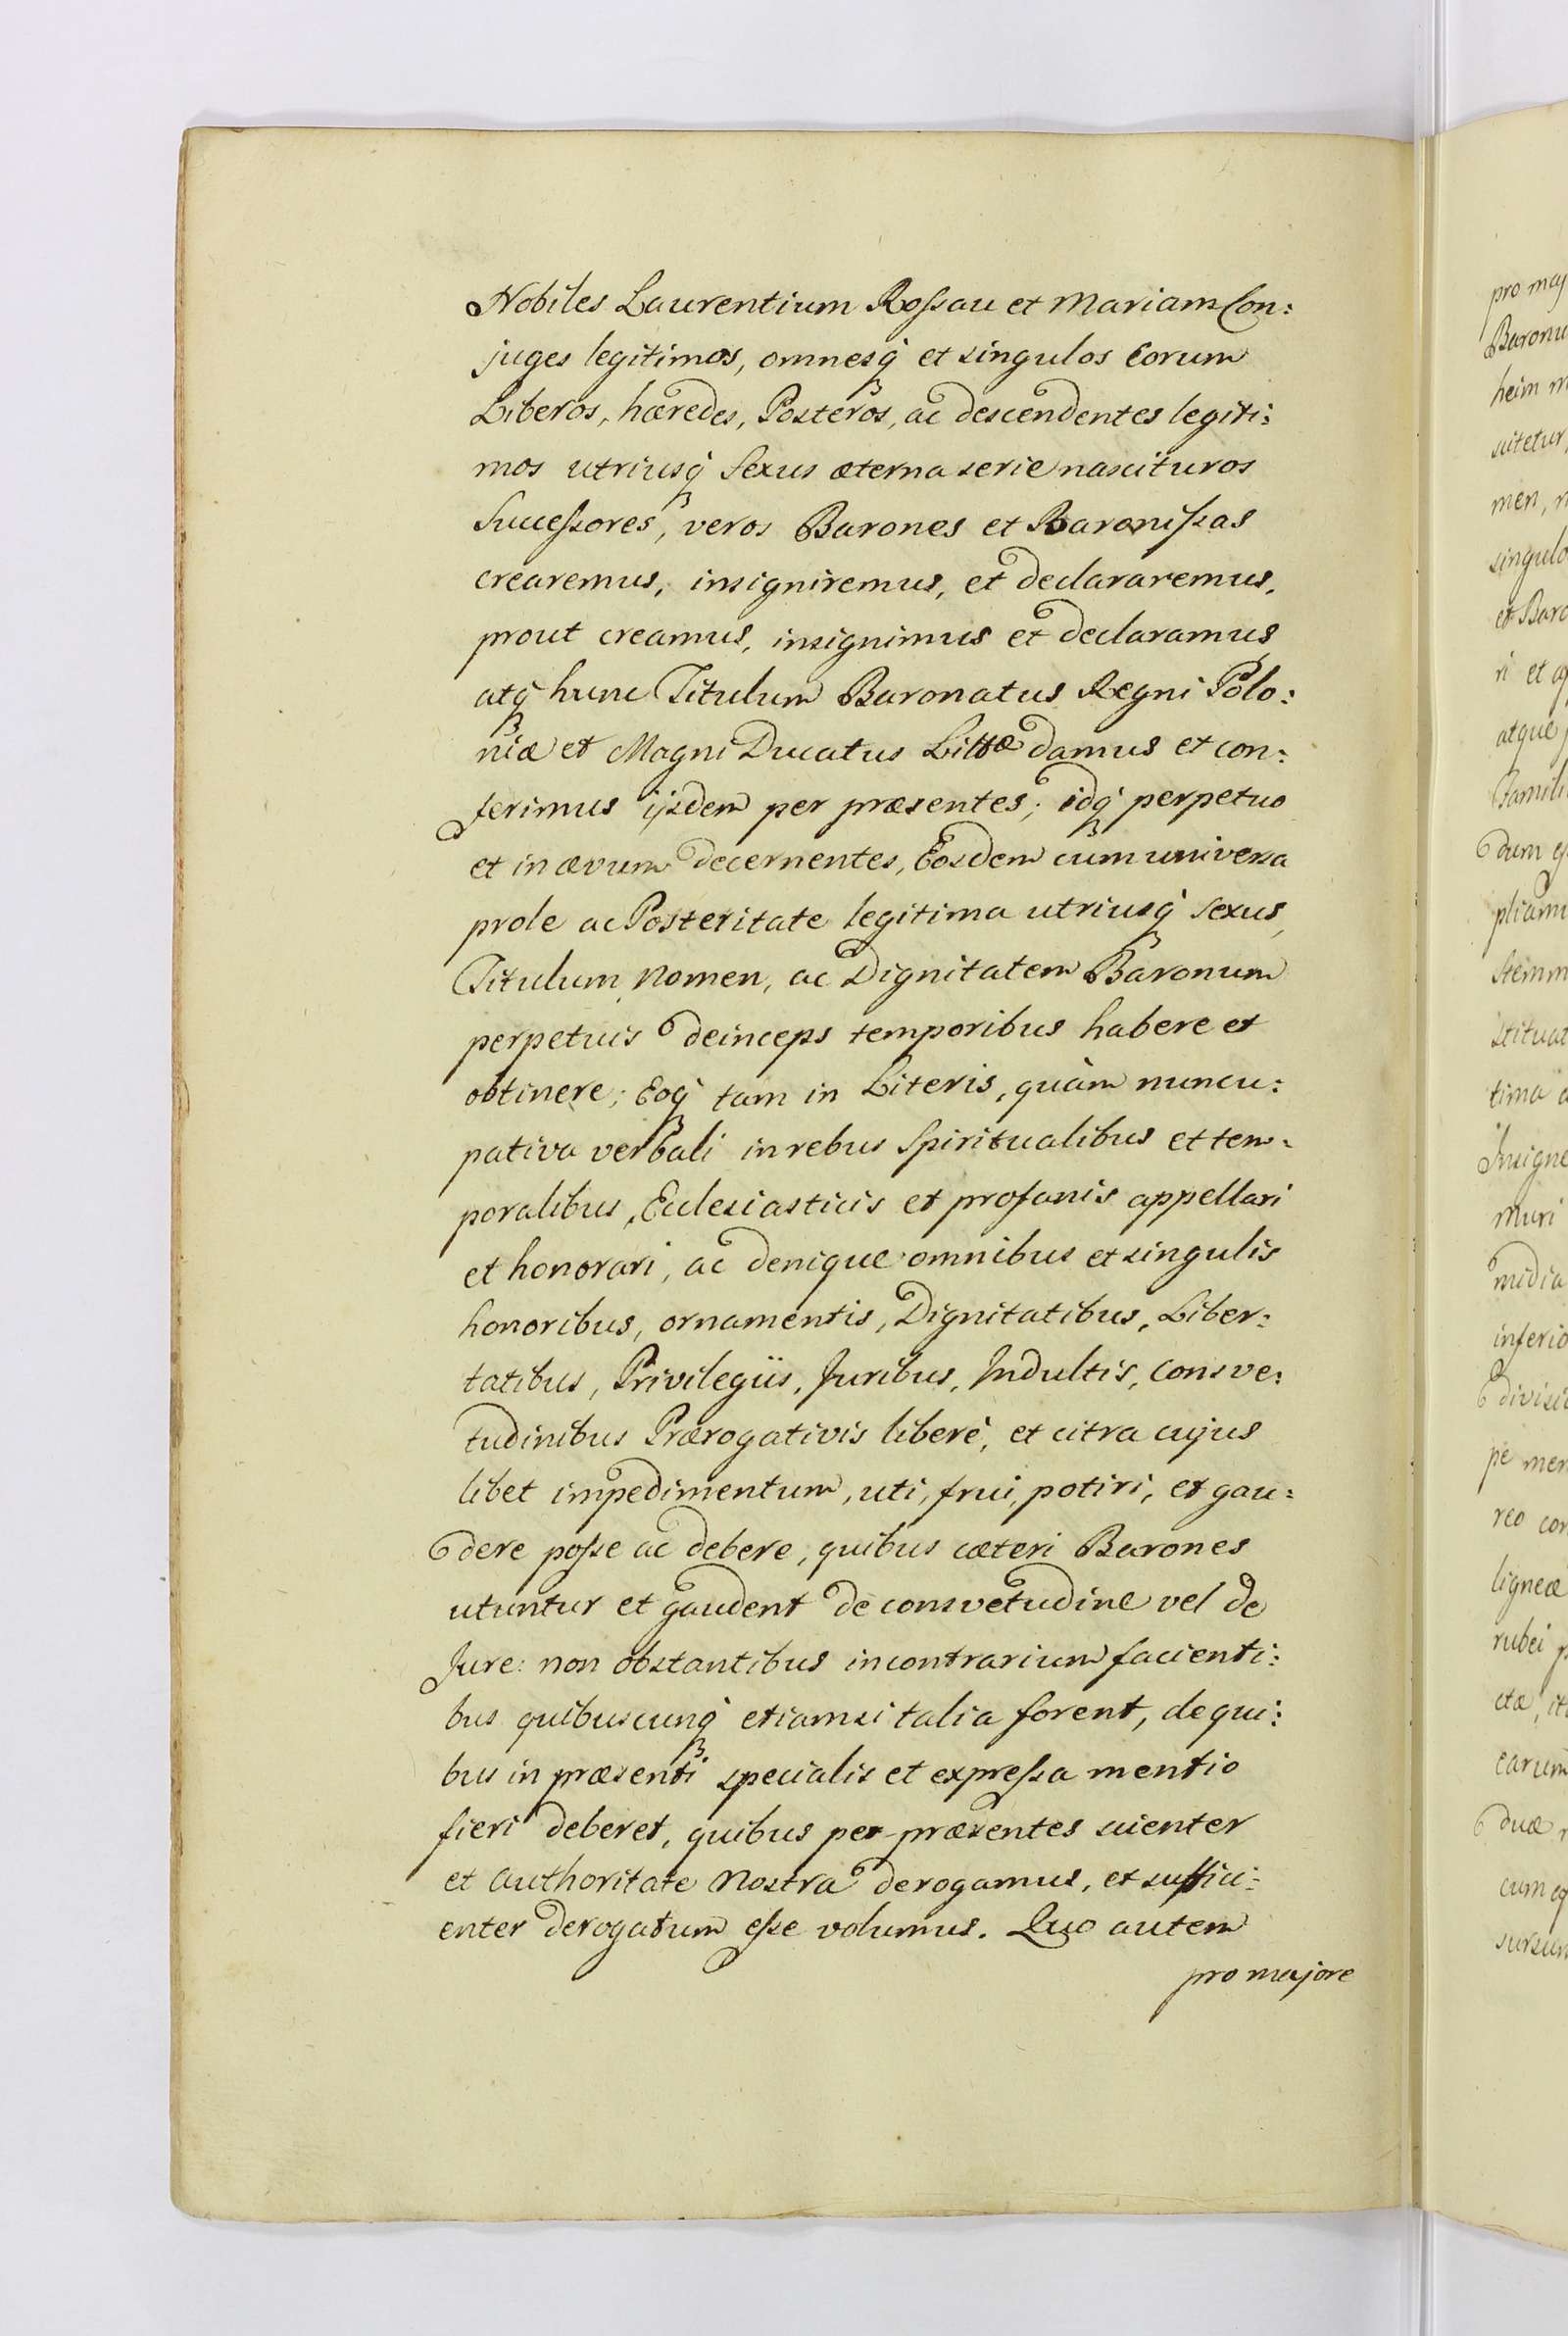 Nobiles Laurentium Rossau et Mariam Con:
juges legitimos, omnesq₃ et singulos Eorum
Liberos, hæredes, Posteros, ac descendentes legiti:
mos utriusq₃ Sexus æterna serie nascituros
Successores, veros Barones et Baronissas
crearemus, insigniremus, et declararemus,
prout creamus, insignimus et declaramus
atq₃ hunc Titulum Baronatus Regni Polo:
niæ et Magni Ducatus Littæ damus et con:
ferimus ijsdem per præsentes; idq₃ perpetuo
et in ævum decernentes, Eosdem cum universa
prole ac Posteritate legitima utriusq₃ Sexus,
Titulum, Nomen, ac Dignitatem Baronum
perpetuis deinceps temporibus habere et
obtinere; Eoq₃ tam in Literis, quàm nuncu:
pativa verbali in rebus Spiritualibus et tem:
poralibus, Ecclesiasticis et profanis appellari
et honorari, ac denique omnibus et singulis
honoribus, ornamentis, Dignitatibus, Liber:
tatibus, Privilegiis, Juribus, Indultis, Consve:
tudinibus Prærogativis liberè, et citra cujus
libet impedimentum, uti, frui, potiri, et gau:
dere posse ac debere, quibus cæteri Barones
utuntur et gaudent de consvetudine vel de
Jure: non obstantibus in contrarium facienti:
bus quibuscunq₃ etiamsi talia forent, de qui:
bus in præsenti specialis et expressa mentio
fieri deberet, quibus per præsentes scienter
et authoritate Nostra derogamus, et suffici:
enter derogatum esse volumus. Quo autem
pro majore
pro maj
Baronu
heim m
scitetur,
men, n
singulo
et Baro
ri et
atque
Famili
dum
pliam
Stemm
stituat
tima
Insigne
muri
midia
inferio
divisi
pe mer
reo cor
ligneæ
rubei
ctæ, it
earum
duæ
cum
sursum